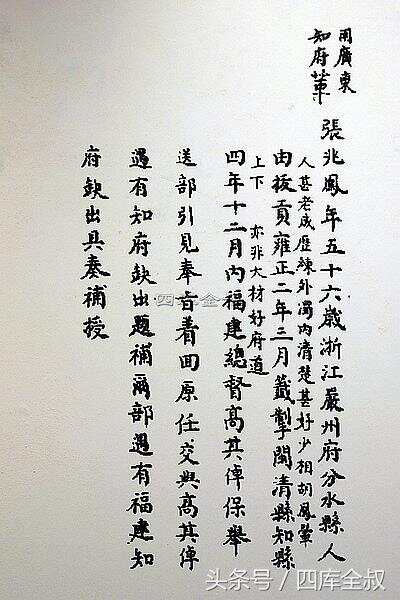 用廣東
知府
張兆鳳年五十六歲浙江嚴州府分水縣人
人甚老成歷練外濁內清楚甚好少相胡鳳翬
由拔貢雍正二年三月籤掣閩清縣知縣
上下 亦非大材好府道
四年十二月內福建總督高其倬保舉
送部引見奉旨着回原任交與高其倬
遇有知府缺出題補爾部遇有福建知
府缺出具奏補授
头条号 / 四库全叔